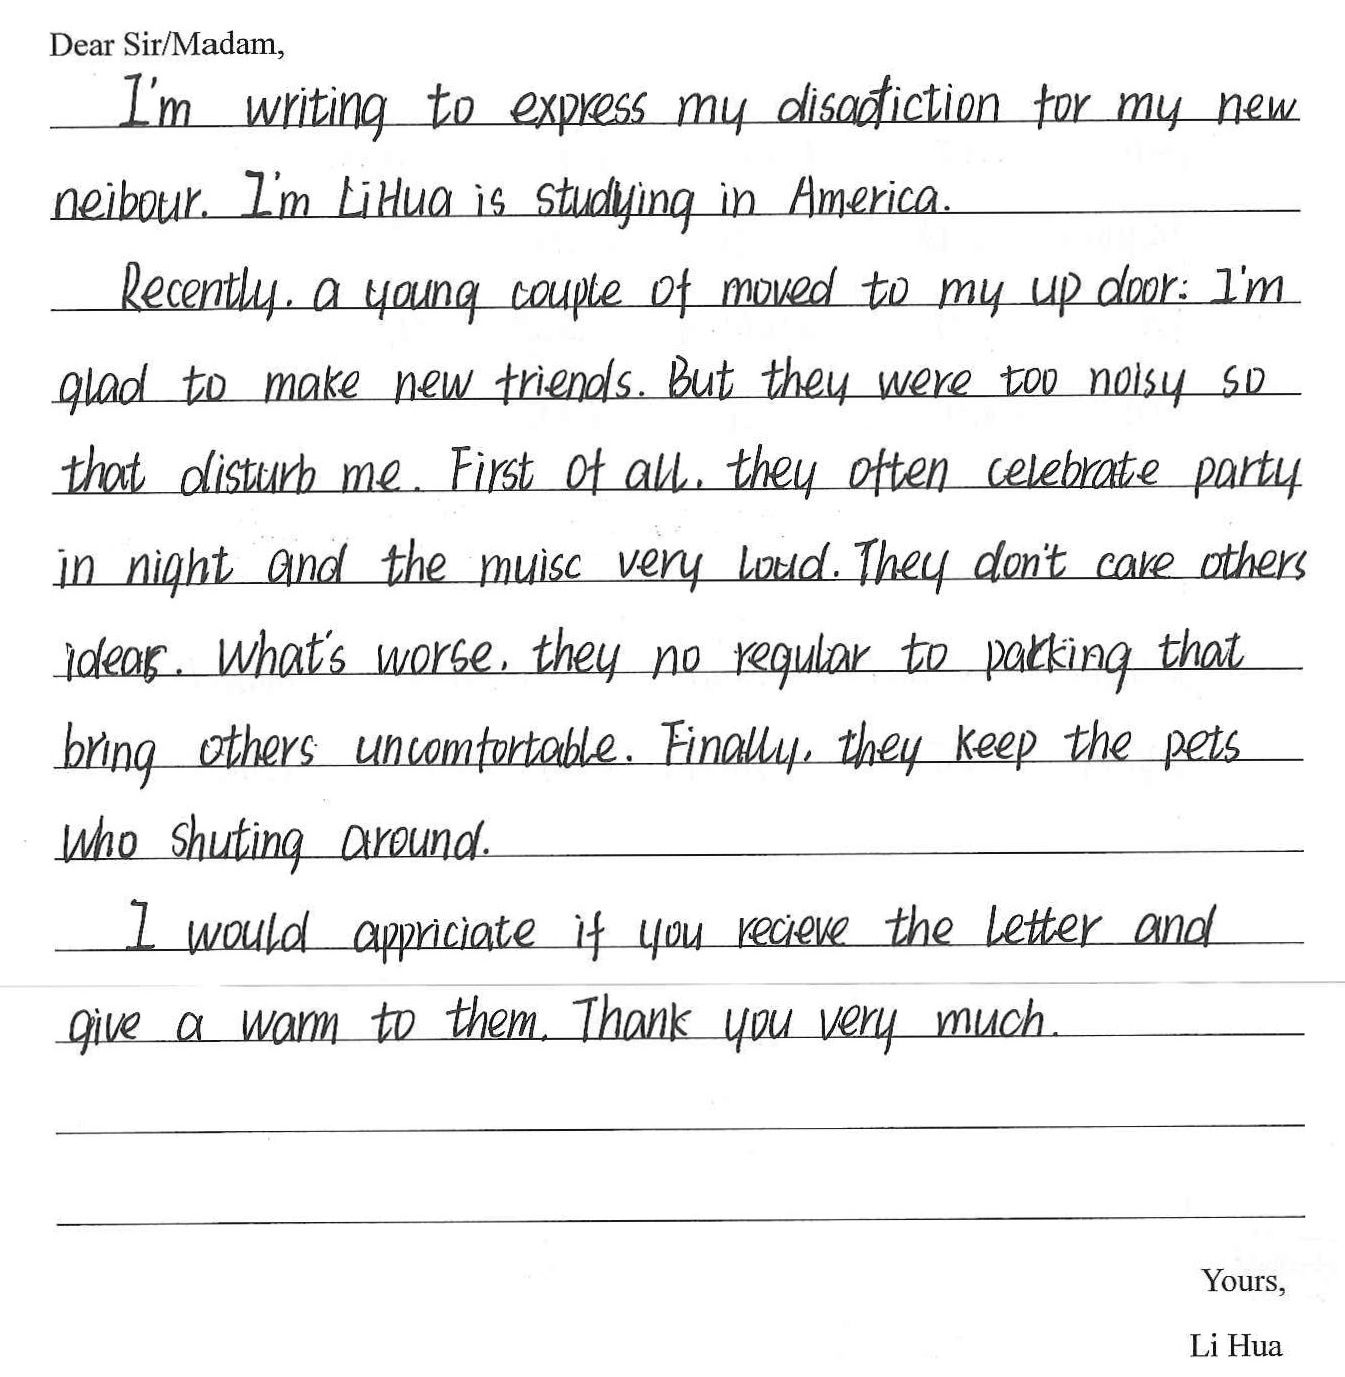 Dear Sir/Madam,
I'm writing to express my disadiction for my new
neibour. I'm LiHua is studying in America.
Recently. a young couple of moved to my up door: I'm
glad to make new friends. But they were too noisy so
that disturb me. First of all. they often celebrate party
in night and the muisc very loud. They don't care others
ideas. What's worse. they no regular to parking that
bring others uncomfortable. Finally, they keep the pets
who shuting around.
I would appriciate if you recieve the letter and
give a warm to them. Thank you very much.
Yours,
Li Hua